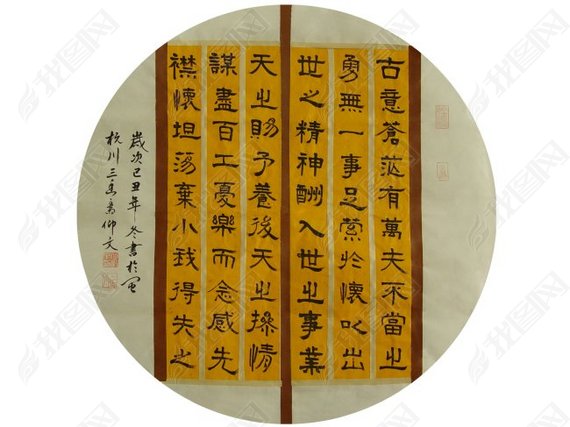 古意蒼茫有萬夫不當之
勇無一事足縈於懷以出
世之精神酬入世之事業
襟懷坦蕩棄小我得失之
謀盡百工憂樂而念感先
天之賜予養後天之操情
歲次己丑年冬書於閩
杭川三仰文
我图网